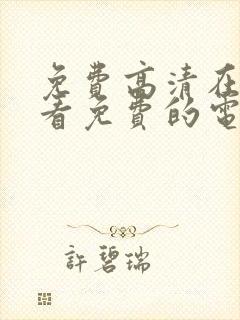 免費高清在
看免費的電
許碧瑞